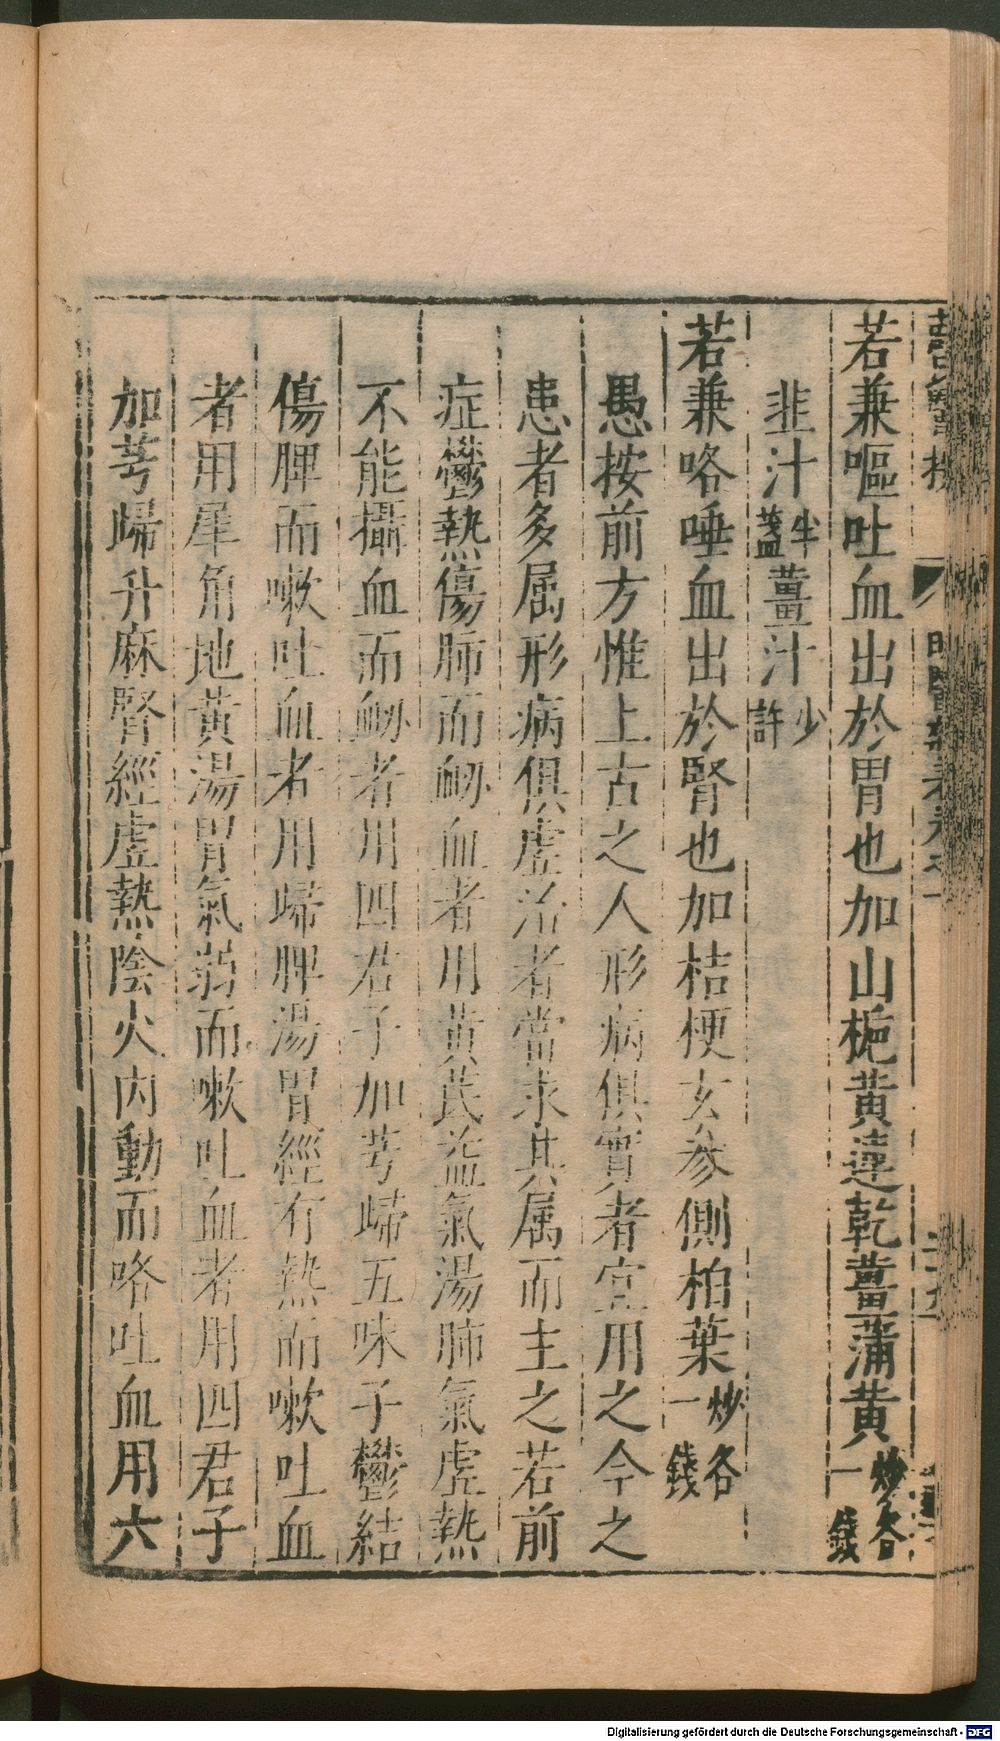 若兼嘔吐血出於胃也加山梔黃連乾薑蒲黃炒各一錢
韭汁半盞薑汁少許
若兼咯唾血出於腎也加桔梗玄參側柏葉炒各一錢
愚按前方惟上古之人形病俱實者宜用之今之
患者多属形病俱虛治者當求其属而主之若前
症鬱熱傷肺而衂血者用黃芪益氣湯肺氣虛熱
不能攝血而衂者用四君子加芎歸五味子鬱結
傷脾而嗽吐血者用歸脾湯胃經有熱而嗽吐血
者用犀角地黃湯胃氣弱而嗽吐血者用四君子
加芎歸升麻腎經虛熱陰火內動而咯吐血用六
Digitalisierung gefördert durch die Deutsche Forschungsgemeinschaft - DFG